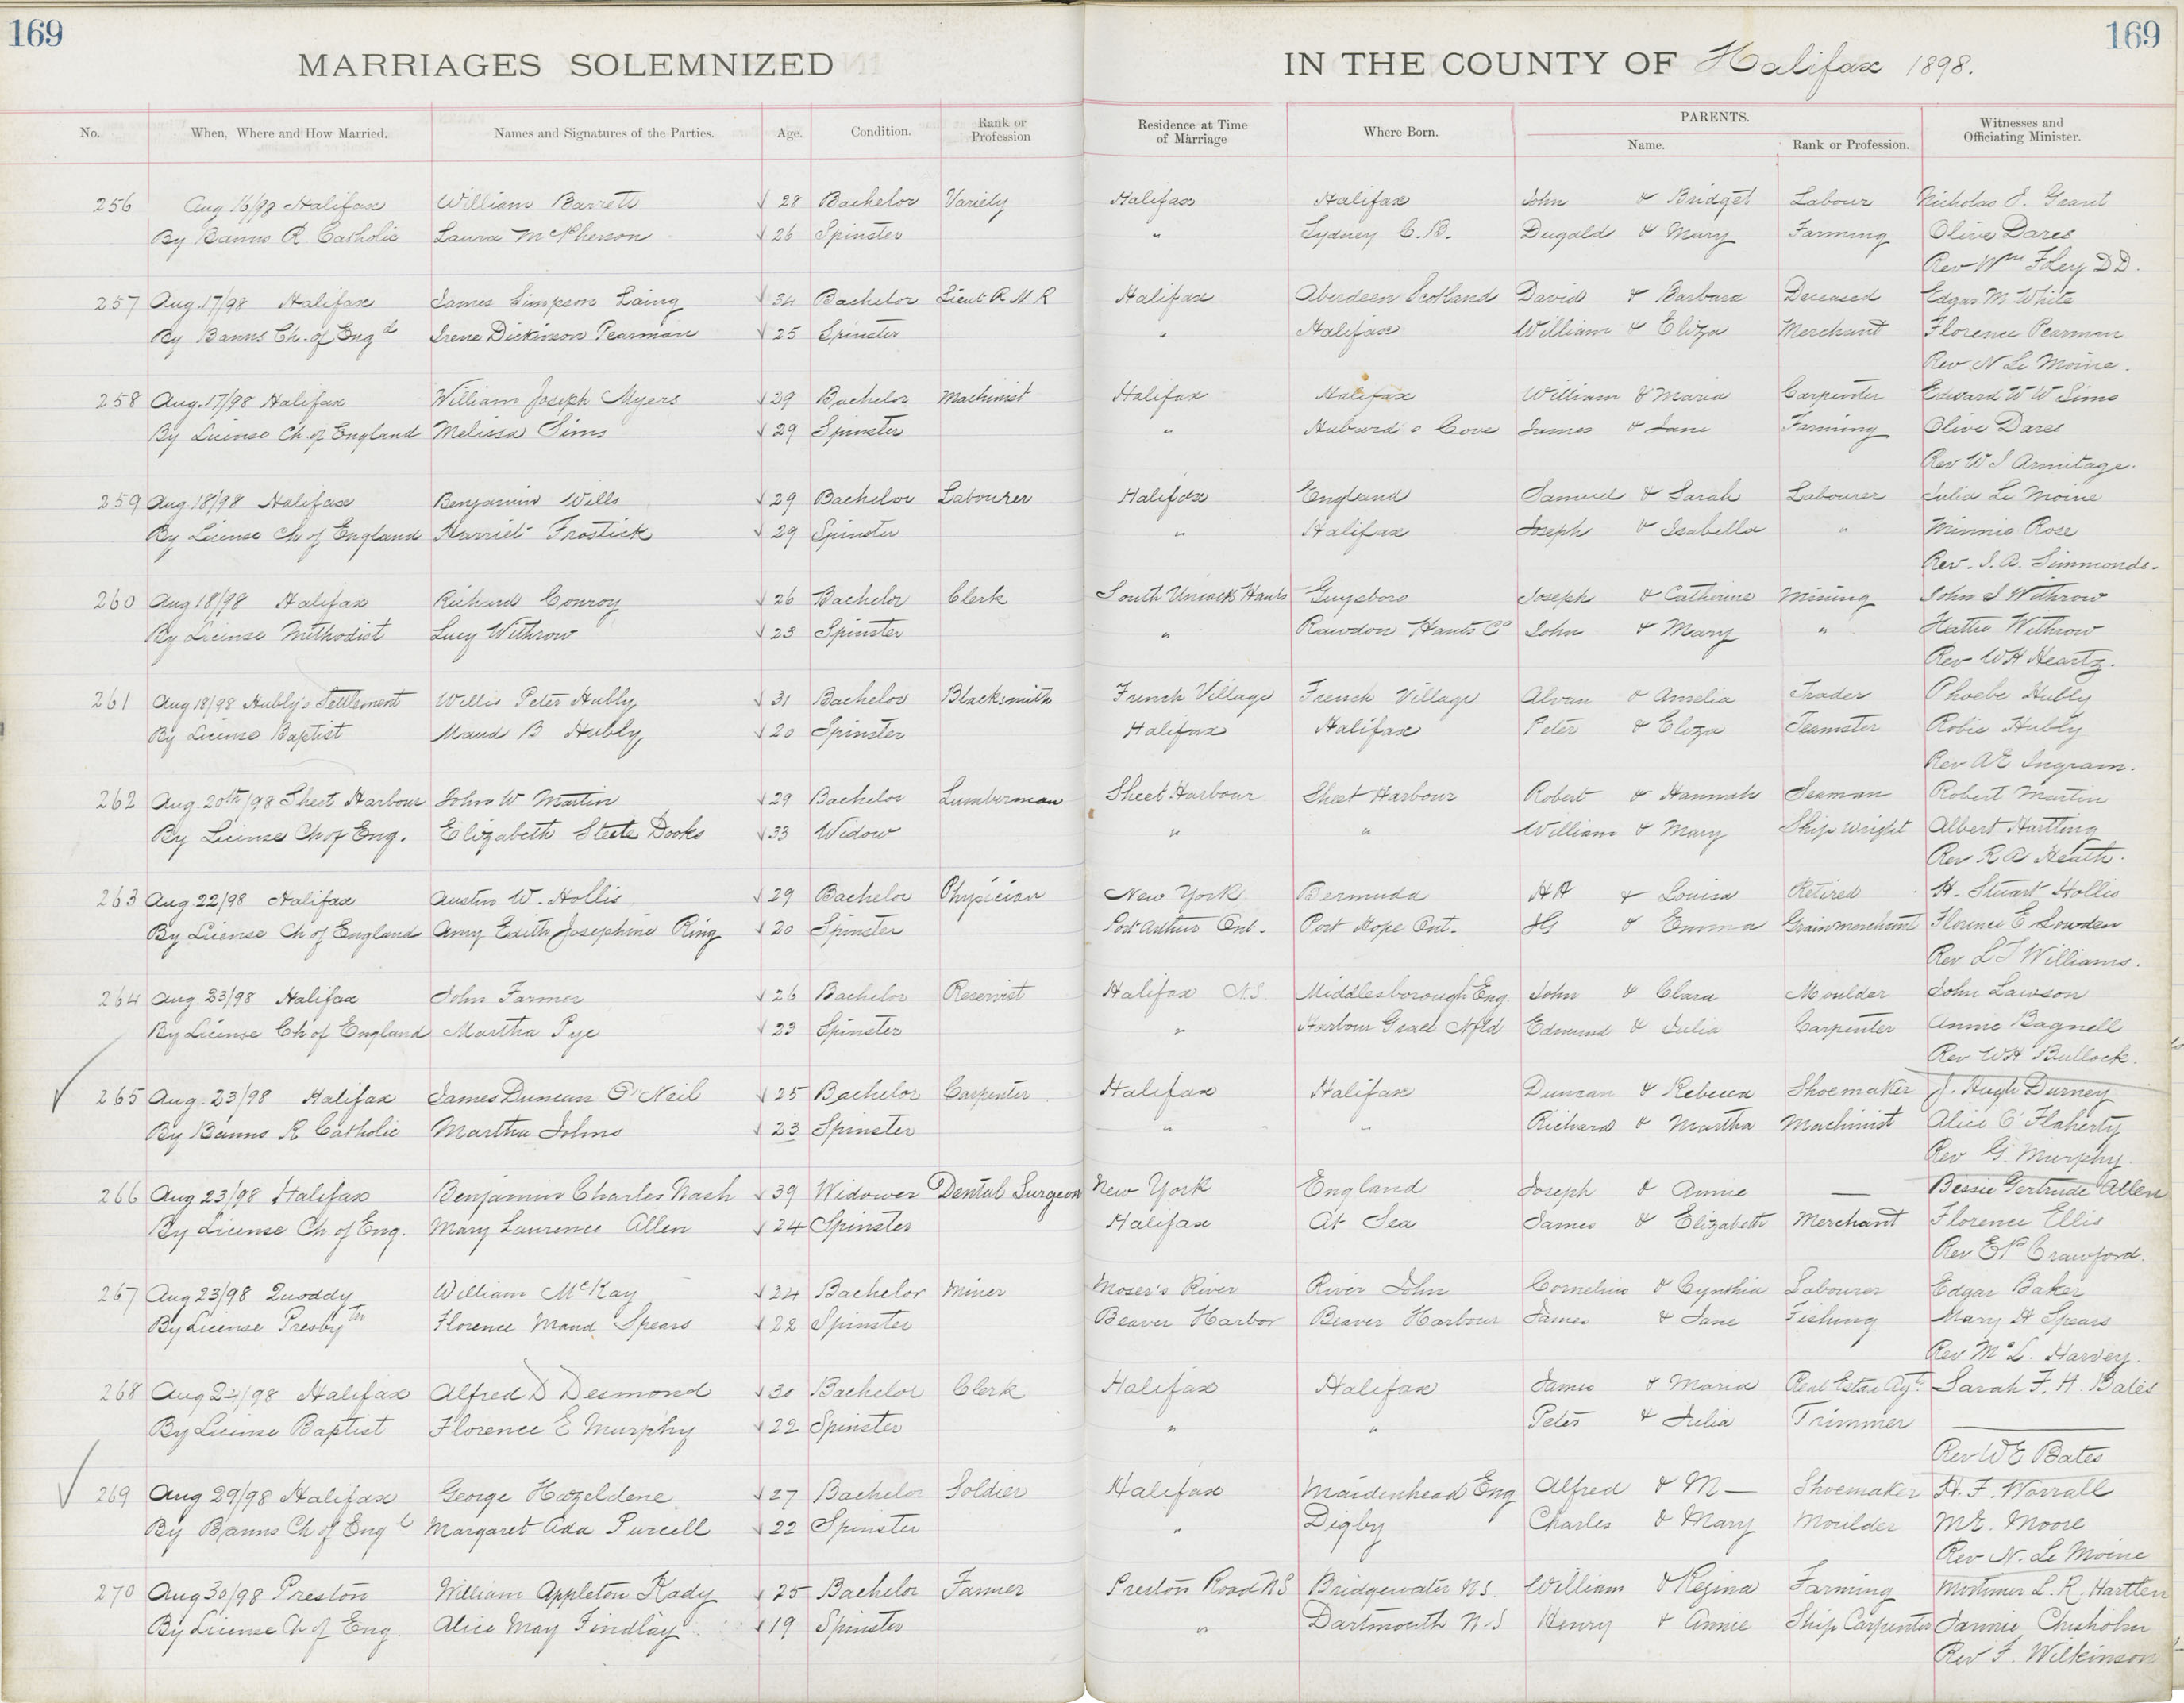 169
169
MARRIAGES SOLEMNIZED IN THE COUNTY OF Halifax 1898.
No. When, Where and How Married. Names and Signatures of the Parties. Age. Condition. Rank or Profession Residence at Time of Marriage Where Born. PARENTS. Name. Rank or Profession. Witnesses and Officiating Minister.
256 Aug 16/98 Halifax William Barrett 28 Bachelor Variety Halifax Halifax John & Bridget Labour Nicholas J. Grant
By Banns R Catholic Laura McPherson 26 Spinster " Sydney C.B. Dugald & Mary Farming Olive Dares
Rev Wm Foley DD.
257 Aug.17/98 Halifax James Simpson Laing 34 Bachelor Lieut R N R Halifax Aberdeen Scotland David & Barbara Deceased Edgar M White
By Banns Ch. of Engd Irene Dickinson Pearman 25 Spinster " Halifax William & Eliza Merchant Florence Pearman
Rev N Le Moine.
258 Aug.17/98 Halifax William Joseph Myers 39 Bachelor Machinist Halifax Halifax William & Maria Carpenter Edward W W Sims
By License Ch. of England Melissa Sims 29 Spinster " Hubbard s Cove James & Jane Farming Olive Dares
Rev W J Armitage.
259 Aug 18/98 Halifax Benjamin Wills 29 Bachelor Labourer Halifax England Samuel & Sarah Labourer Julia Le Moine
By License Ch of England Harriet Frostick 29 Spinster " Halifax Joseph & Isabella " Minnie Rose
Rev. S. A. Simmonds.
260 Aug 18/98 Halifax Richard Conroy 26 Bachelor Clerk South Uniack Hants Guysboro Joseph & Catherine Mining John S Withrow
By License Methodist Lucy Withrow 23 Spinster " Rawdon Hants Co John & Mary " Hattie Withrow
Rev W H Heartz.
261 Aug 18/98 Hubly's Settlement Willis Peter Hubly 31 Bachelor Blacksmith French Village French Village Alvan & Amelia Trader Phoebe Hubly
By License Baptist Maud B Hubly 20 Spinster Halifax Halifax Peter & Eliza Teamster Robie Hubly
Rev A E Ingram.
262 Aug.20th/98 Sheet Harbour John W Martin 29 Bachelor Lumberman Sheet Harbour Sheet Harbour Robert & Hannah Seaman Robert Martin
By License Ch of Eng. Elizabeth Steele Dooks 33 Widow " " William & Mary Ship Wright Albert Hartling
Rev R A Heath.
263 Aug 22/98 Halifax Austin W. Hollis 29 Bachelor Physician New York Bermuda H A & Louisa Retired H. Stuart Hollis
By License Ch of England Amy Edith Josephine Ring 20 Spinster Port Arthur Ont. Port Hope Ont. J G & Emma Grain merchant Florence E Lowden
Rev L J Williams.
264 Aug. 23/98 Halifax John Farmer 26 Bachelor Reservist Halifax N.S. Middlesborough Eng. John & Clara Moulder John Lawson
By License Ch of England Martha Pye 23 Spinster " Harbour Grace Nfld Edmund & Julia Carpenter Annie Bagnell
Rev W H Bullock.
265 Aug. 23/98 Halifax James Duncan O'Neil 25 Bachelor Carpenter Halifax Halifax Duncan & Rebecca Shoemaker J. Hugh Durney
By Banns R Catholic Martha Johns 23 Spinster " " Richard & Martha Machinist Alice O'Flaherty
Rev G. Murphy.
266 Aug 23/98 Halifax Benjamin Charles Nash 39 Widower Dental Surgeon New York England Joseph & Annie — Bessie Gertrude Allen
By License Ch. of Eng. Mary Laurence Allen 24 Spinster Halifax At Sea James & Elizabeth Merchant Florence Ellis
Rev E P Crawford.
267 Aug 23/98 Quoddy William McKay 24 Bachelor Miner Moser's River River John Cornelius & Cynthia Labourer Edgar Baker
By License Presbytn Florence Maud Spears 22 Spinster Beaver Harbor Beaver Harbour James & Jane Fishing Mary H Spears
Rev McL. Harvey.
268 Aug 24/98 Halifax Alfred D Desmond 30 Bachelor Clerk Halifax Halifax James & Maria Real Estate Agt. Sarah F. H. Bates
By License Baptist Florence E Murphy 22 Spinster " " Peter & Julia Trimmer
Rev W E Bates
269 Aug 29/98 Halifax George Hazeldene 27 Bachelor Soldier Halifax Maidenhead Eng Alfred & M— Shoemaker H. F. Worrall
By Banns Ch of Engl Margaret Ada Purcell 22 Spinster " Digby Charles & Mary Moulder M E. Moore
Rev N. Le Moine
270 Aug 30/98 Preston William Appleton Kady 25 Bachelor Farmer Preston Road NS Bridgewater N S. William & Regina Farming Mortimer L. R. Hartlen
By License Ch of Eng. Alice May Findlay 19 Spinster " Dartmouth N-S Henry & Annie Ship Carpenter Jannie Chisholm
Rev F. Wilkinson